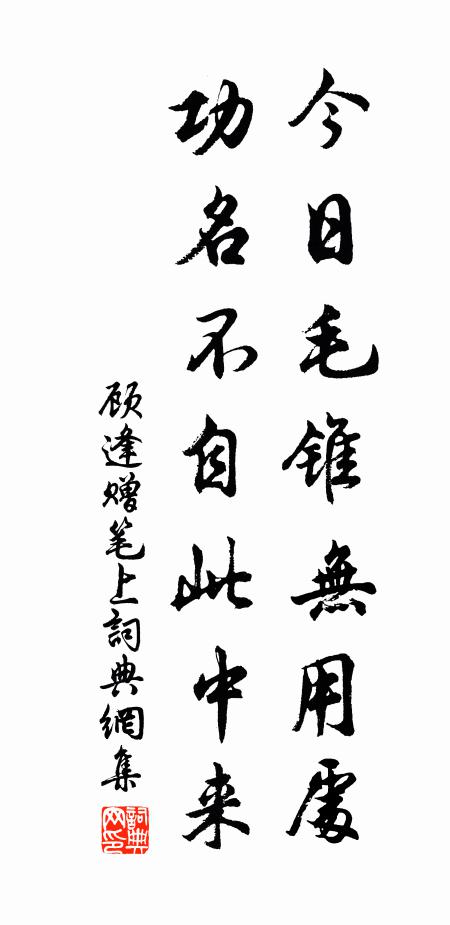 今日毛锥無用處
功名不自此中来
顾逢赠笔上詞典網集
詞典网印